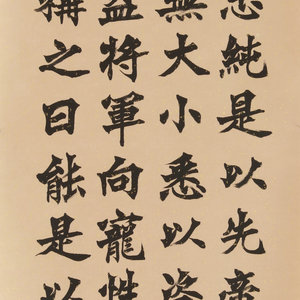 忠純是以先帝
無大小悉以咨
益將軍向寵性
稱之曰能是以